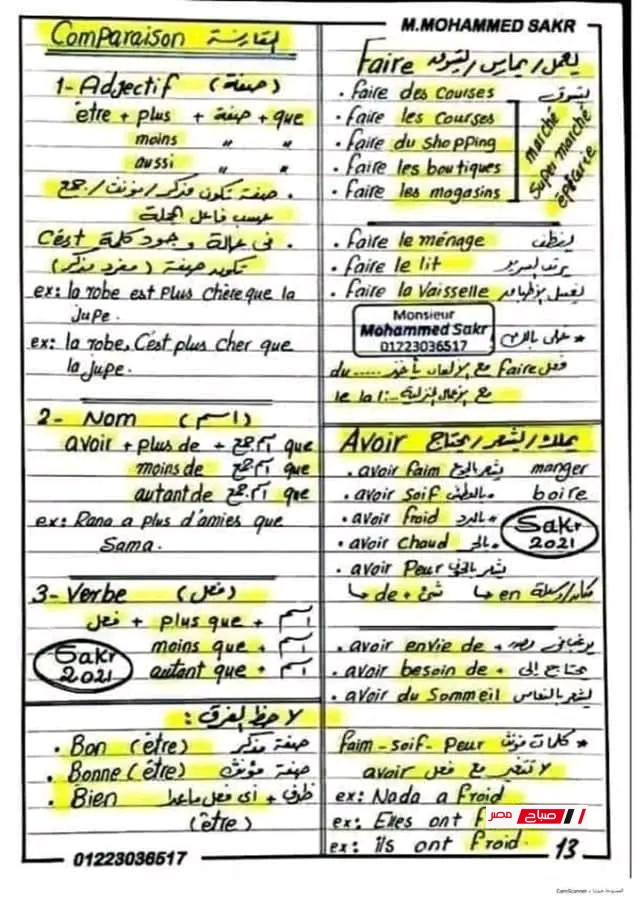 M.MOHAMMED SAKR
Comparaison المقارنة
1- Adjectif (صفة)
être + plus + صفة + que
moins " "
aussi " "
. صفة تكون مذكر / مؤنث / جمع
حسب فاعل الجملة
. فى حالة وجود كلمة C'est
تكون صفة (مفرد مذكر)
ex: la robe est plus chère que la
jupe.
ex: la robe, C'est plus cher que
la jupe.
2- Nom (اسم)
avoir + plus de + اسم جمع que
moins de اسم جمع que
autant de اسم جمع que
ex: Rana a plus d'amies que
Sama.
3- Verbe (فعل)
فعل + plus que + اسم
moins que + اسم
autant que + اسم
Sakr
2021
لاحظ الفرق :
. Bon (être) صفة مذكر
. Bonne (être) صفة مؤنث
. Bien ظرف + أى فعل ماعدا
(être)
01223036517
Faire يعمل / يمارس /
. faire des courses يتسوق
. faire les courses
. faire du shopping
. faire les boutiques
. faire les magasins
marché
Super marché
épicerie
. faire le ménage ينظف
. faire le lit يرتب السرير
. faire la vaisselle يغسل
Monsieur
Mohammed Sakr
01223036517
* خلى بالك
فعل Faire مع الألعاب يأخذ du.....
مع الأعمال المنزلية :- le la l
Avoir يملك / يشعر / يحتاج
. avoir faim يشعر بالجوع manger
. avoir soif بالعطش boire
. avoir froid بالبرد
. avoir chaud بالحر
. avoir Peur يشعر بالخوف
Sakr
2021
. avoir envie de +
. avoir besoin de + يحتاج إلى
. avoir du Sommeil يشعر بالنعاس
* كلمات مؤنث faim - soif - Peur
لا تتغير مع فعل avoir
ex: Nada a froid
ex: Elles ont f
ex: ils ont froid.
صباح مصر
13
CamScanner